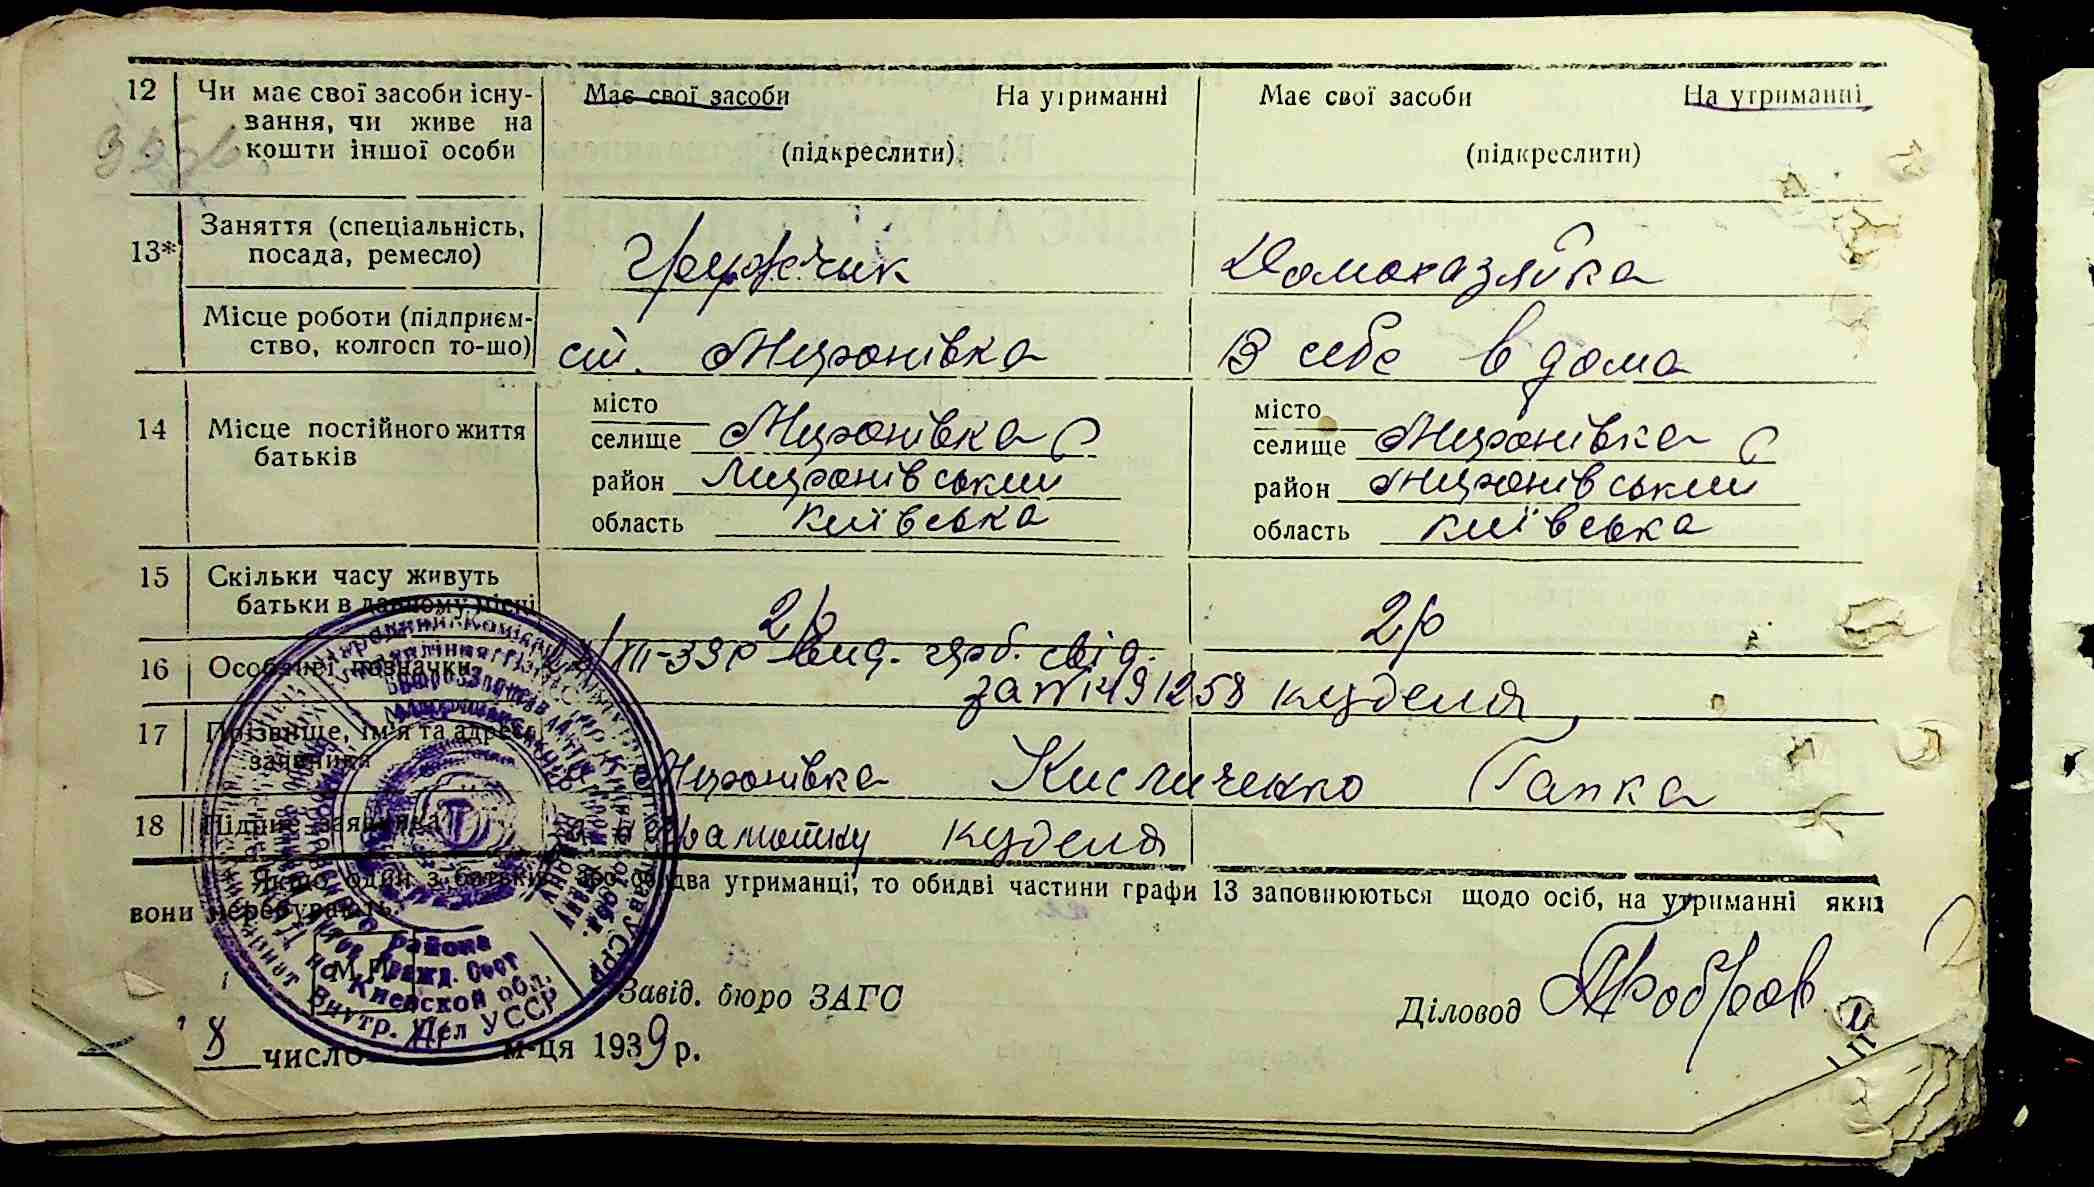 12 Чи має свої засоби існу- Має свої засоби На утриманні Має свої засоби На утриманні
вання, чи живе на
кошти іншої особи (підкреслити) (підкреслити)
13* Заняття (спеціальність,
посада, ремесло) Домохазяйка
Місце роботи (підприєм-
ство, колгосп то-що) ст. Миронівка В себе в дома
місто місто
14 Місце постійного життя селище Миронівка селище Миронівка
батьків район Миронівський район Миронівський
область Київська область Київська
15 Скільки часу живуть
батьки в даному місці 2р 2р
16 Особливі позначки
за № 491258 Куделя
17 Прізвище, ім'я та адреса
заявника Миронівка Кисличенко Гапка
18 Підпис заявника Куделя
Якщо один з батьків або два утриманці, то обидві частини графи 13 заповнюються щодо осіб, на утриманні яких
вони перебувають.
М. П.
Завід. бюро ЗАГС
Діловод
8 число м-ця 1939 р.
района
Гражд. Сост
по Киевской обл.
Внутр. Дел УССР